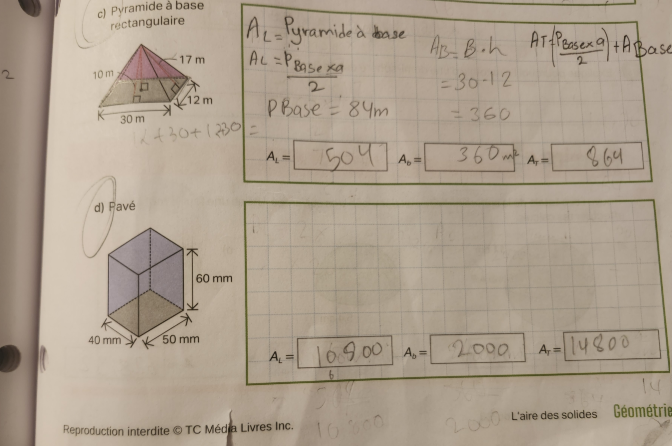 c) Pyramide à base
rectangulaire
10 m
17 m
12 m
30 m
2
AL = Pyramide à base
AL = PBase x a
2
PBase = 84m
AB = B·h
= 30·12
= 360
AT = (PBase x a) + ABase
2
12+30+12+30 =
AL = 504
Ab = 360 m²
AT = 864
d) Pavé
60 mm
40 mm
50 mm
AL = 10800
Ab = 2000
AT = 14800
6
14
2000
Reproduction interdite © TC Média Livres Inc.
L'aire des solides
Géométrie